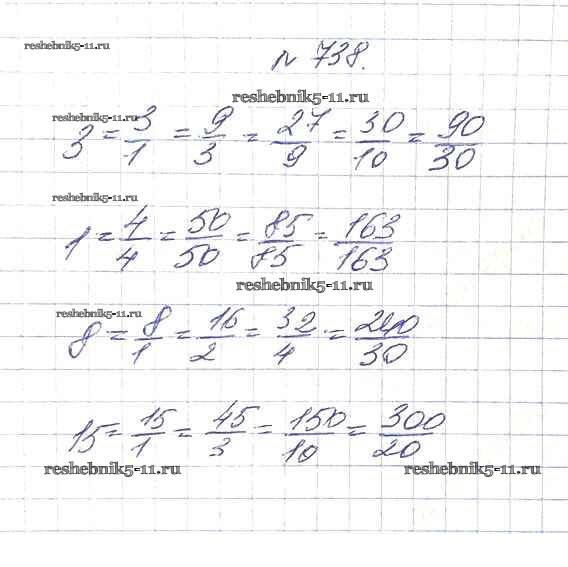 reshebnik5-11.ru
№ 738.
reshebnik5-11.ru
reshebnik5-11.ru
3 = 3/1 = 9/3 = 27/9 = 30/10 = 90/30
reshebnik5-11.ru
1 = 4/4 = 50/50 = 85/85 = 163/163
reshebnik5-11.ru
reshebnik5-11.ru
8 = 8/1 = 16/2 = 32/4 = 240/30
15 = 15/1 = 45/3 = 150/10 = 300/20
reshebnik5-11.ru reshebnik5-11.ru